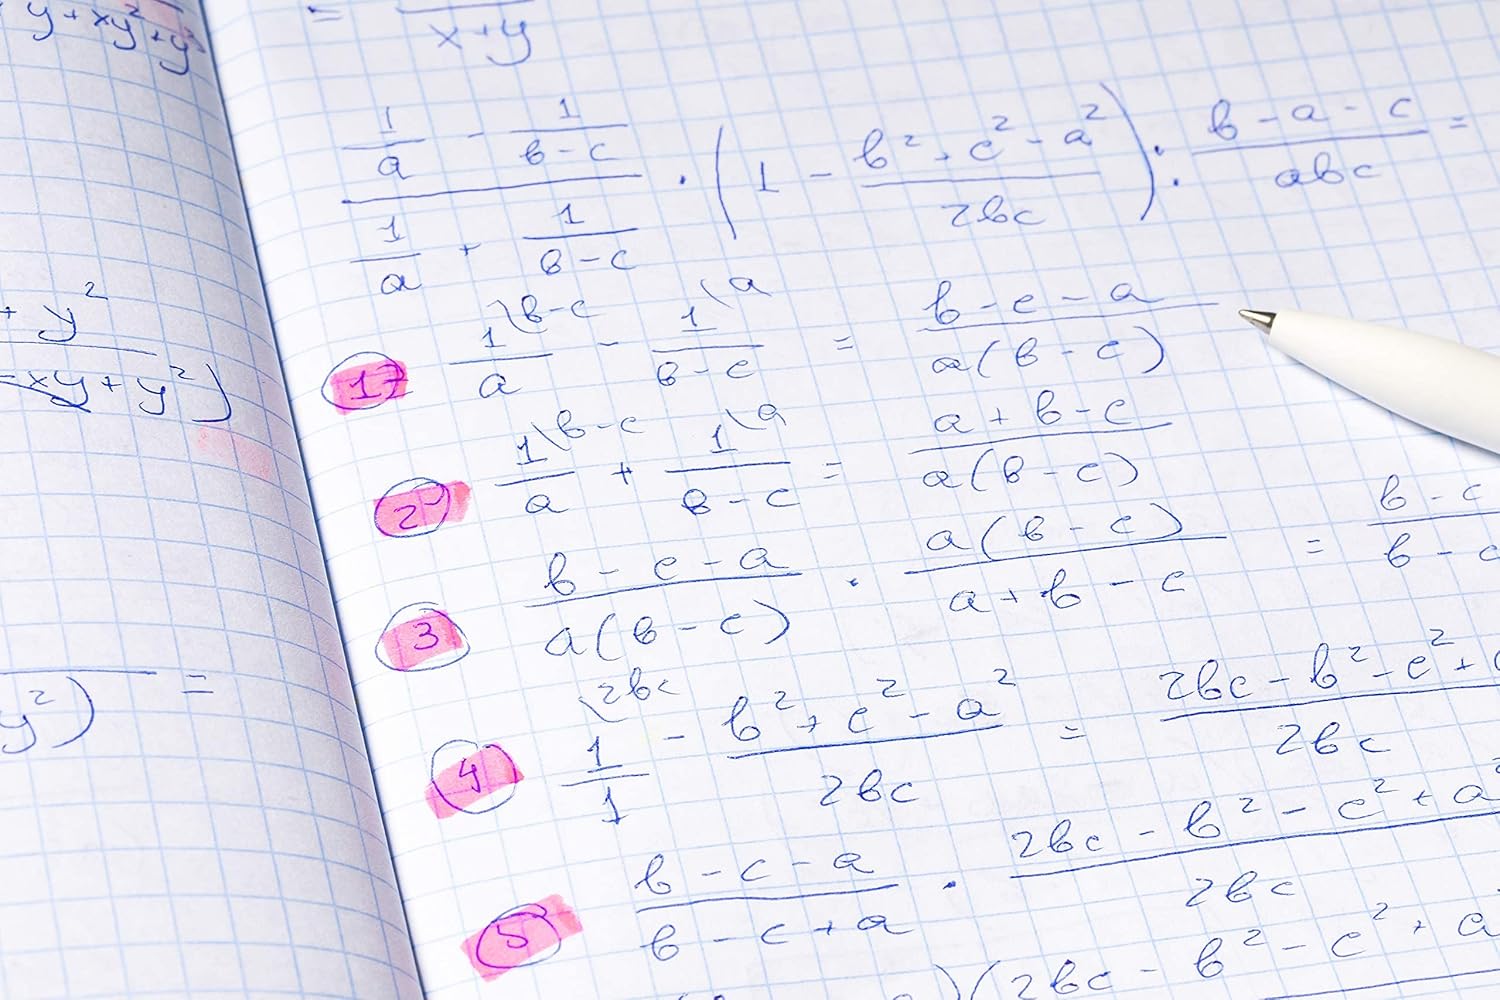 y + xy² + y³
+ y²
- xy + y²)
y²) =
= / (x + y)
(1/a - 1/(b - c)) / (1/a + 1/(b - c)) · (1 - (b² + c² - a²)/(2bc)) : (b - a - c)/(abc) =
1) 1\b-c / a - 1\a / (b - c) = (b - c - a) / (a(b - c))
2) 1\b-c / a + 1\a / (b - c) = (a + b - c) / (a(b - c))
3 (b - c - a) / (a(b - c)) · (a(b - c)) / (a + b - c) = (b - c / (b - c
4 1\2bc / 1 - (b² + c² - a²) / (2bc) = (2bc - b² - c² + / (2bc)
5 (b - c - a) / (b - c + a) · (2bc - b² - c² + a²) / (2bc)
)(2bc - b² - c² + a